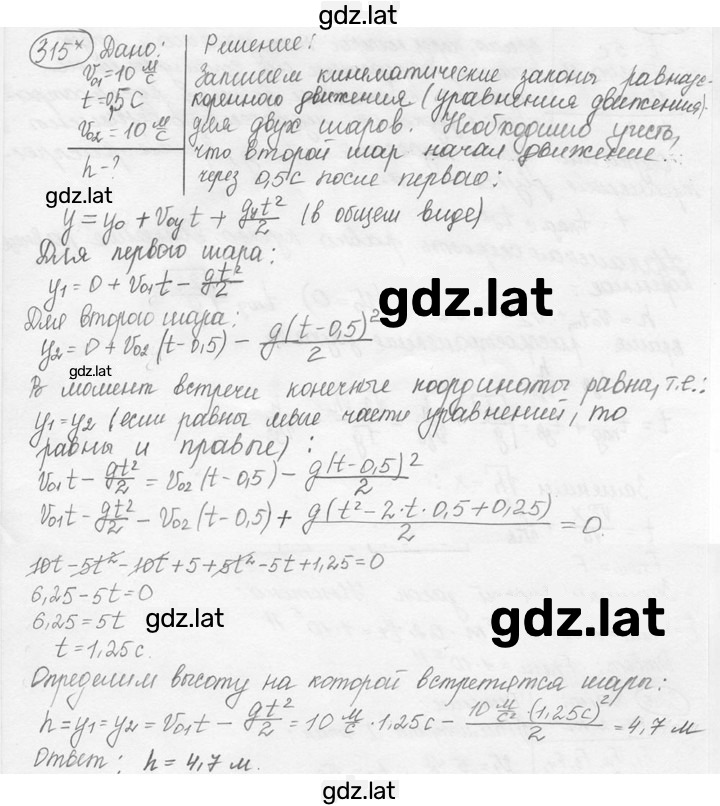 gdz.lat
315* Дано: Решение:
V₀₁=10 м/с Записываем кинематические законы равнауско-
t=0,5 с коренного движения (уравнения движения)
V₀₂=10 м/с для двух шаров. Необходимо учесть,
h-? что второй шар начал движение
через 0,5с после первого:
gdz.lat
y = y₀ + V₀yt + gyt²/2 (в общем виде)
Для первого шара:
y₁ = 0 + V₀₁t - gt²/2
gdz.lat
Для второго шара:
y₂ = 0 + V₀₂ (t-0,5) - g(t-0,5)²/2
gdz.lat
В момент встречи конечные координаты равны, т.е.:
y₁=y₂ (если равны левые части уравнений, то
равны и правые):
V₀₁t - gt²/2 = V₀₂ (t-0,5) - g(t-0,5)²/2
V₀₁t - gt²/2 - V₀₂ (t-0,5) + g(t²-2·t·0,5+0,25)/2 = 0
10t - 5t² - 10t + 5 + 5t² - 5t + 1,25 = 0
6,25 - 5t = 0
6,25 = 5t gdz.lat gdz.lat
t = 1,25 с.
Определим высоту на которой встретятся шары:
h = y₁ = y₂ = V₀₁t - gt²/2 = 10 м/с · 1,25с - 10 м/с² · (1,25с)²/2 = 4,7 м
Ответ: h = 4,7 м.
gdz.lat